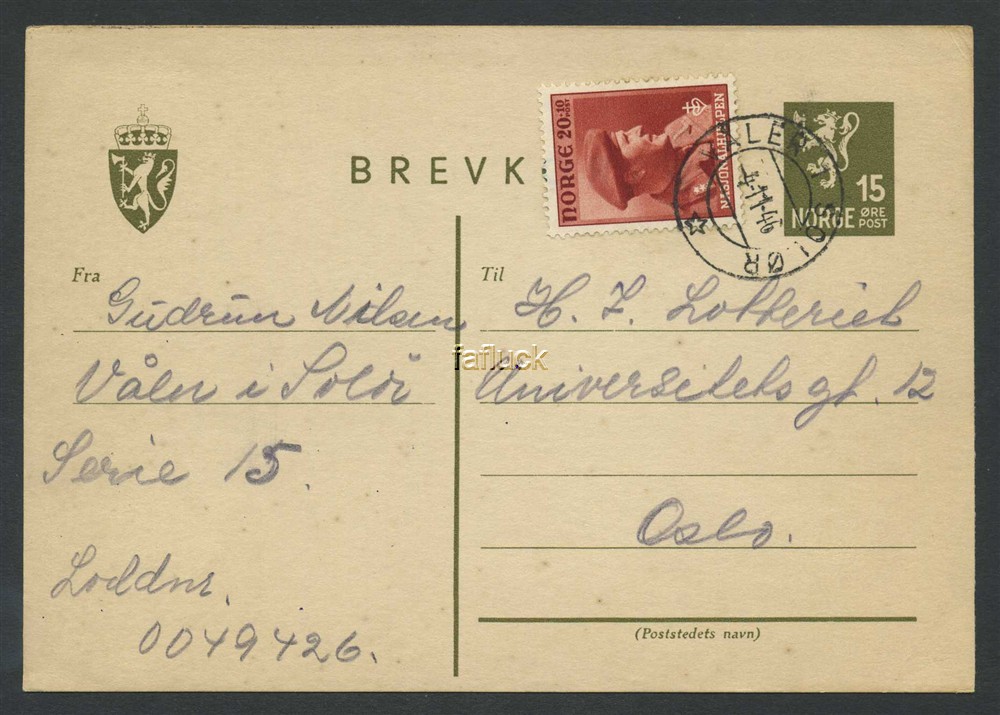 BREVK
NORGE 20+10
POST
NASJONALHJELPEN
VÅLER I SOLØR
4-11-46
15
NORGE ØRE
POST
Fra
Gudrun Nilsen
Våler i Solör
Serie 15.
Loddnr.
0049426.
Til
H. J. Lotteriet
Universitetsgt. 12
Oslo.
(Poststedets navn)
fafluck